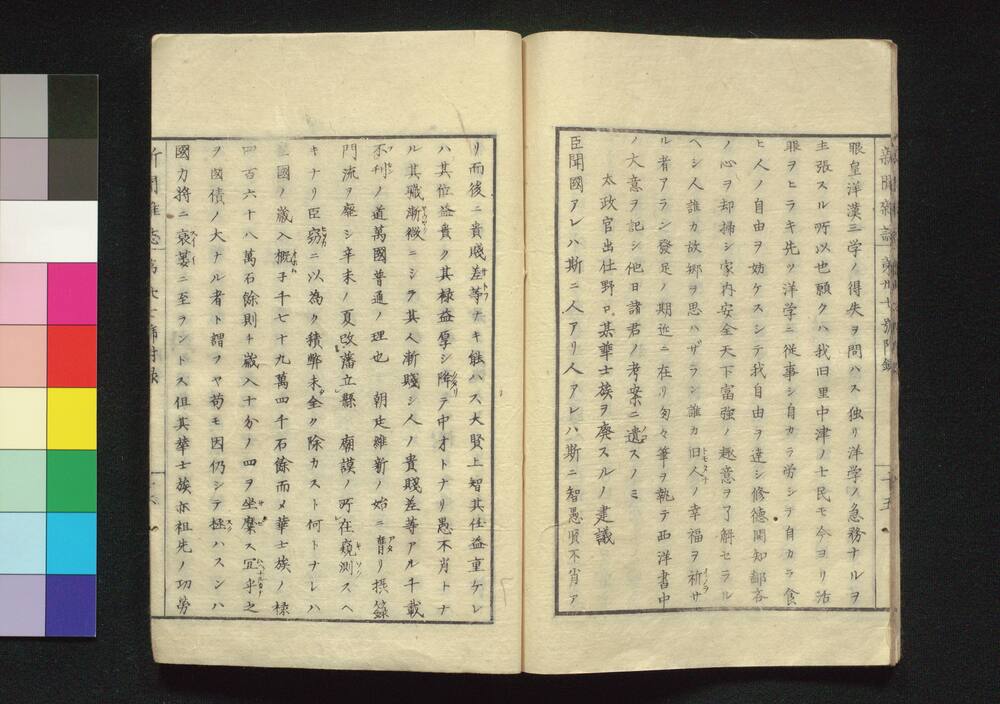 新聞雑誌
眼皇洋漢三学ノ得失ヲ問ハス独リ洋学ノ急務ナルヲ
主張スル所以也願クハ我旧里中津ノ士民モ今ヨリ活
眼ヲヒラキ先ツ洋学ニ従事シ自カラ労シテ自カラ食
ヒ人ノ自由ヲ妨ケスシテ我自由ヲ達シ修徳開知鄙吝
ノ心ヲ却掃シ家内安全天下富強ノ趣意ヲ了解セラル
ヘシ人誰カ故郷ヲ思ハザラン誰カ旧人ノ幸福ヲ祈サ
ル者アラン發足ノ期近ニ在リ匆々筆ヲ執テ西洋書中
ノ大意ヲ記シ他日諸君ノ考案ニ遺スノミ
太政官出仕野口某華士族ヲ廃スルノ建議
臣聞國アレハ斯ニ人アリ人アレハ斯ニ智愚賢不肖ア
リ而後ニ貴賤差等ナキ能ハス大賢上智其任益重ケレ
ハ其位益貴ク其禄益厚シ降テ中才トナリ愚不肖トナ
ル其職漸微ニシテ其人漸賤シ人ノ貴賤差等アル千載
不刊ノ道萬國普通ノ理也 朝廷維新ノ始ニ膺リ摂籙
門流ヲ廃シ辛未ノ夏改藩立縣 廟謨ノ所在窺測スヘ
キナリ臣窃ニ以為ク積弊未全ク除カスト何トナレハ
國ノ歳入概子千七十九萬四千石餘而メ華士族ノ禄
四百六十八萬石餘則チ歳入十分ノ四ヲ坐糜ス冝乎之
ヲ國債ノ大ナル者ト謂フヤ苟モ因仍シテ極ハスンハ
國力将ニ衰
ニ至ラントス但其華士族亦祖先ノ功労